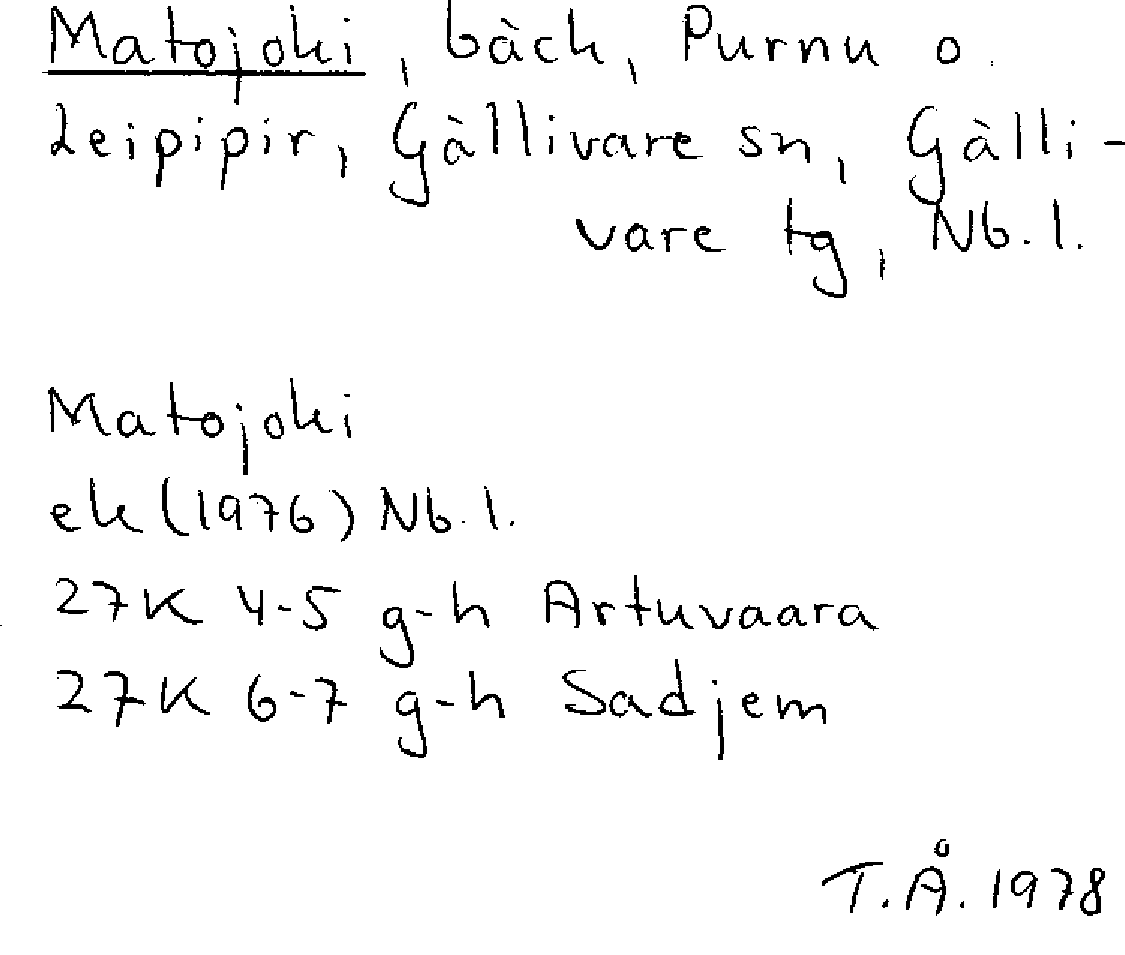 Matojoki, bäck, Purnu o.
Leipipir, Gällivare sn, Gälli-
vare tg, Nb.l.
Matojoki
ek (1976) Nb.l.
27K 4-5 g-h Artuvaara
27K 6-7 g-h Sadjem
T.Å. 1978